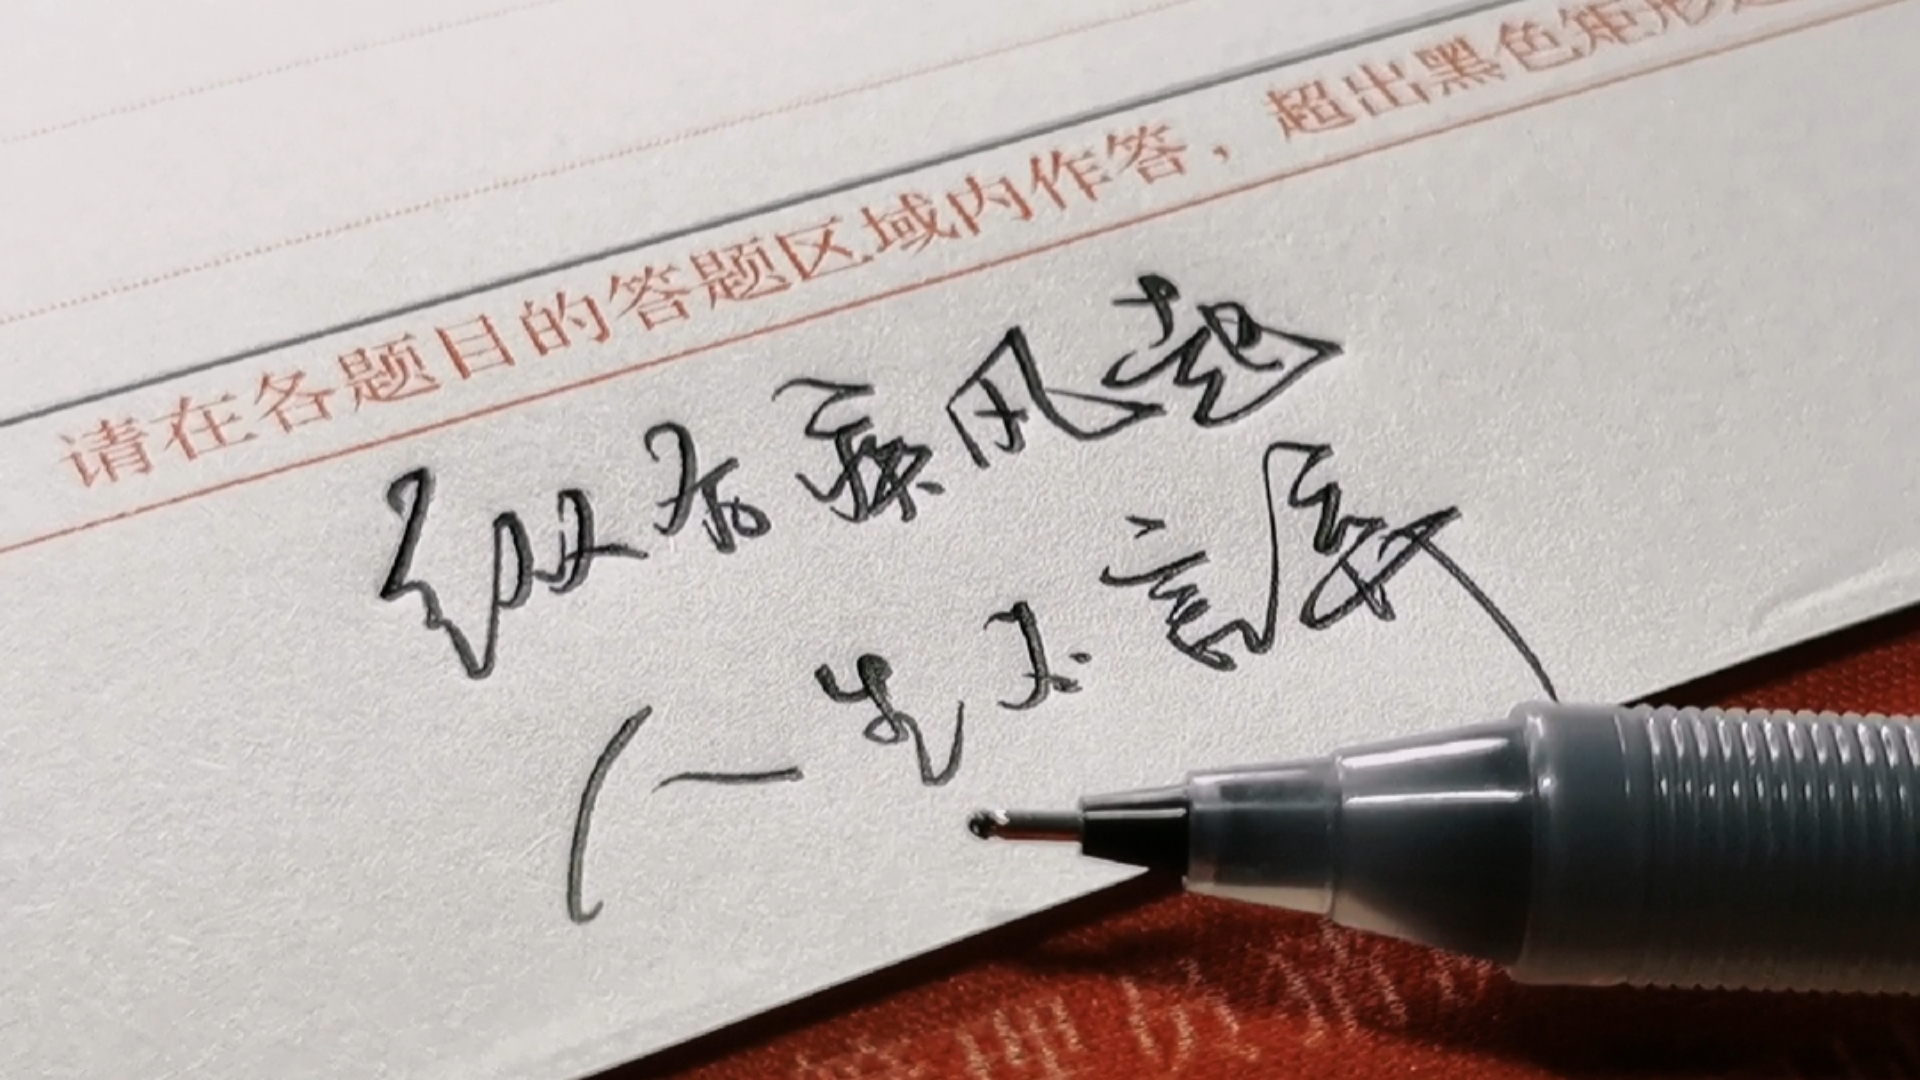 请在各题目的答题区域内作答，超出黑色矩形
纵有疾风起
(一生不言弃)